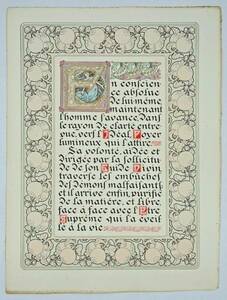 En conscien
ce absolue
de lui-même
maintenant
l'homme s'avance. Dans
le rayon de clarté entre
vue, vers l'Idéal, Foyer
lumineux qui l'attire.
Sa volonté, aidée et
dirigée par la sollicitu
de de son Guide Divin
traverse les embûches
des démons malfaisants
et il arrive enfin, purifié
de la matière, et libre
face à face avec l'Etre
Suprême qui la éveil
lé à la vie